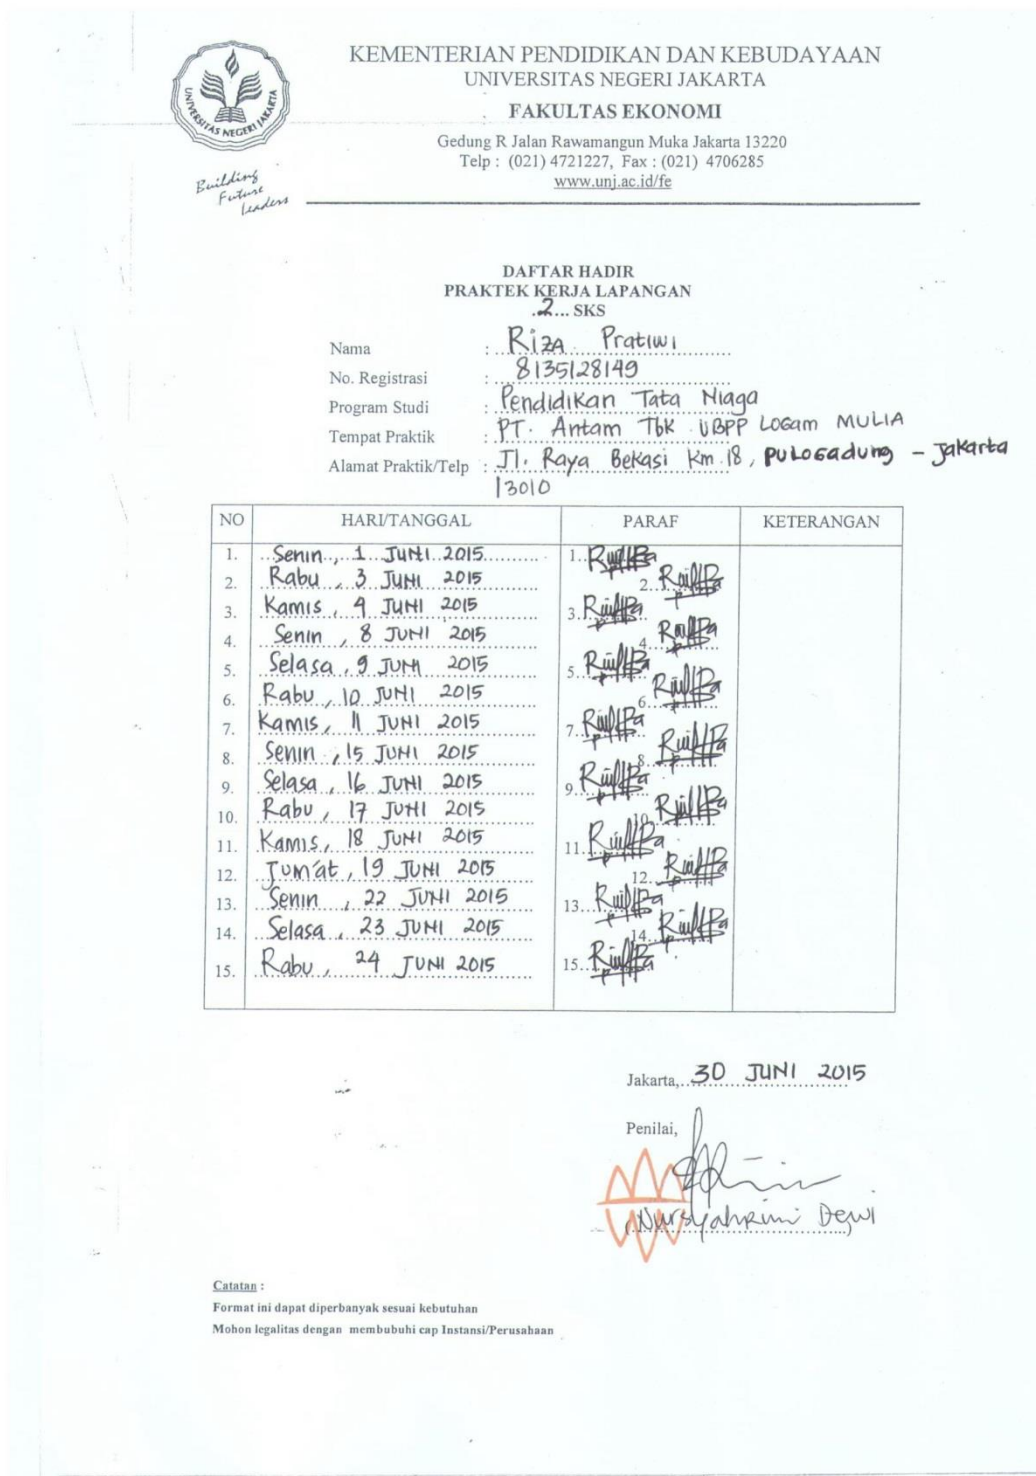 KEMENTERIAN PENDIDIKAN DAN KEBUDAYAAN
UNIVERSITAS NEGERI JAKARTA
FAKULTAS EKONOMI
Gedung R Jalan Rawamangun Muka Jakarta 13220
Telp : (021) 4721227, Fax : (021) 4706285
www.unj.ac.id/fe
UNIVERSITAS NEGERI JAKARTA
Building
Future
Leaders
DAFTAR HADIR
PRAKTEK KERJA LAPANGAN
.2... SKS
Nama : Riza Pratiwi
No. Registrasi : 8135128149
Program Studi : Pendidikan Tata Niaga
Tempat Praktik : PT. Antam Tbk UBPP Logam MULIA
Alamat Praktik/Telp : Jl. Raya Bekasi Km.18, PULOGadung - Jakarta
13010
NO HARI/TANGGAL PARAF KETERANGAN
1. Senin, 1 JUNI 2015 1.
2. Rabu, 3 JUNI 2015 2.
3. Kamis, 4 JUNI 2015 3.
4. Senin, 8 JUNI 2015 4.
5. Selasa, 9 JUNI 2015 5.
6. Rabu, 10 JUNI 2015 6.
7. Kamis, 11 JUNI 2015 7.
8. Senin, 15 JUNI 2015 8.
9. Selasa, 16 JUNI 2015 9.
10. Rabu, 17 JUNI 2015 10.
11. Kamis, 18 JUNI 2015 11.
12. Jum'at, 19 JUNI 2015 12.
13. Senin, 22 JUNI 2015 13.
14. Selasa, 23 JUNI 2015 14.
15. Rabu, 24 JUNI 2015 15.
Jakarta, 30 JUNI 2015
Penilai,
(Nursyahrini Dewi)
Catatan :
Format ini dapat diperbanyak sesuai kebutuhan
Mohon legalitas dengan membubuhi cap Instansi/Perusahaan